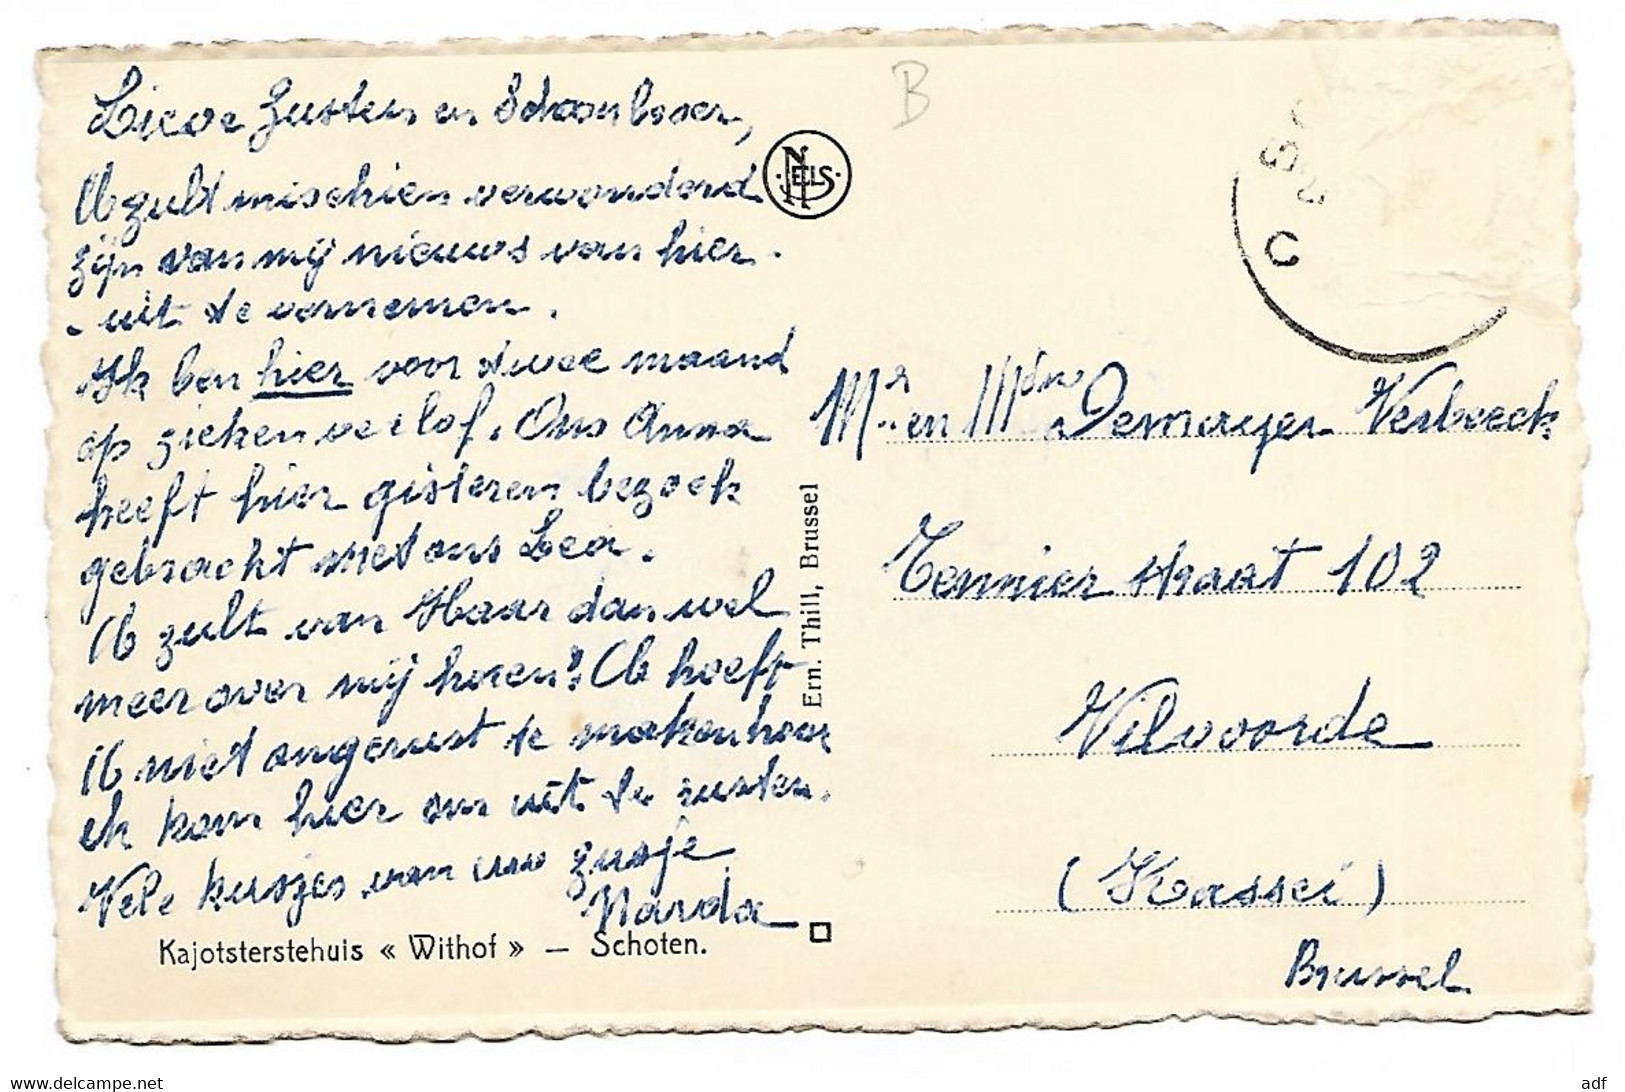 Lieve Zusten en Schoonbroer,
U zult mischien verwonderd
zijn van mij nieuws van hier
- uit te vernemen.
Ik ben hier voor twee maand
op ziekenverlof. Ons Anna
heeft hier gisteren bezoek
gebracht met ons Lea.
U zult van Haar dan wel
meer over mij horen? U hoeft
U niet ongerust te maken hoor
ik kom hier om uit te rusten.
Vele kusjes van uw zusje
Narda
Kajotsterstehuis « Withof » — Schoten.
NELS
Ern. Thill, Brussel
B
Mr en Mdm Demayer Verbeeck
Tennier straat 102
Vilvoorde
(Kassei)
Brussel
www.delcampe.net
adf